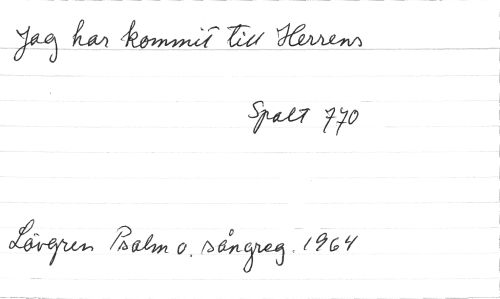 Jag har kommit till Herrens
Spalt 770
Lövgren Psalm o. sångreg. 1964